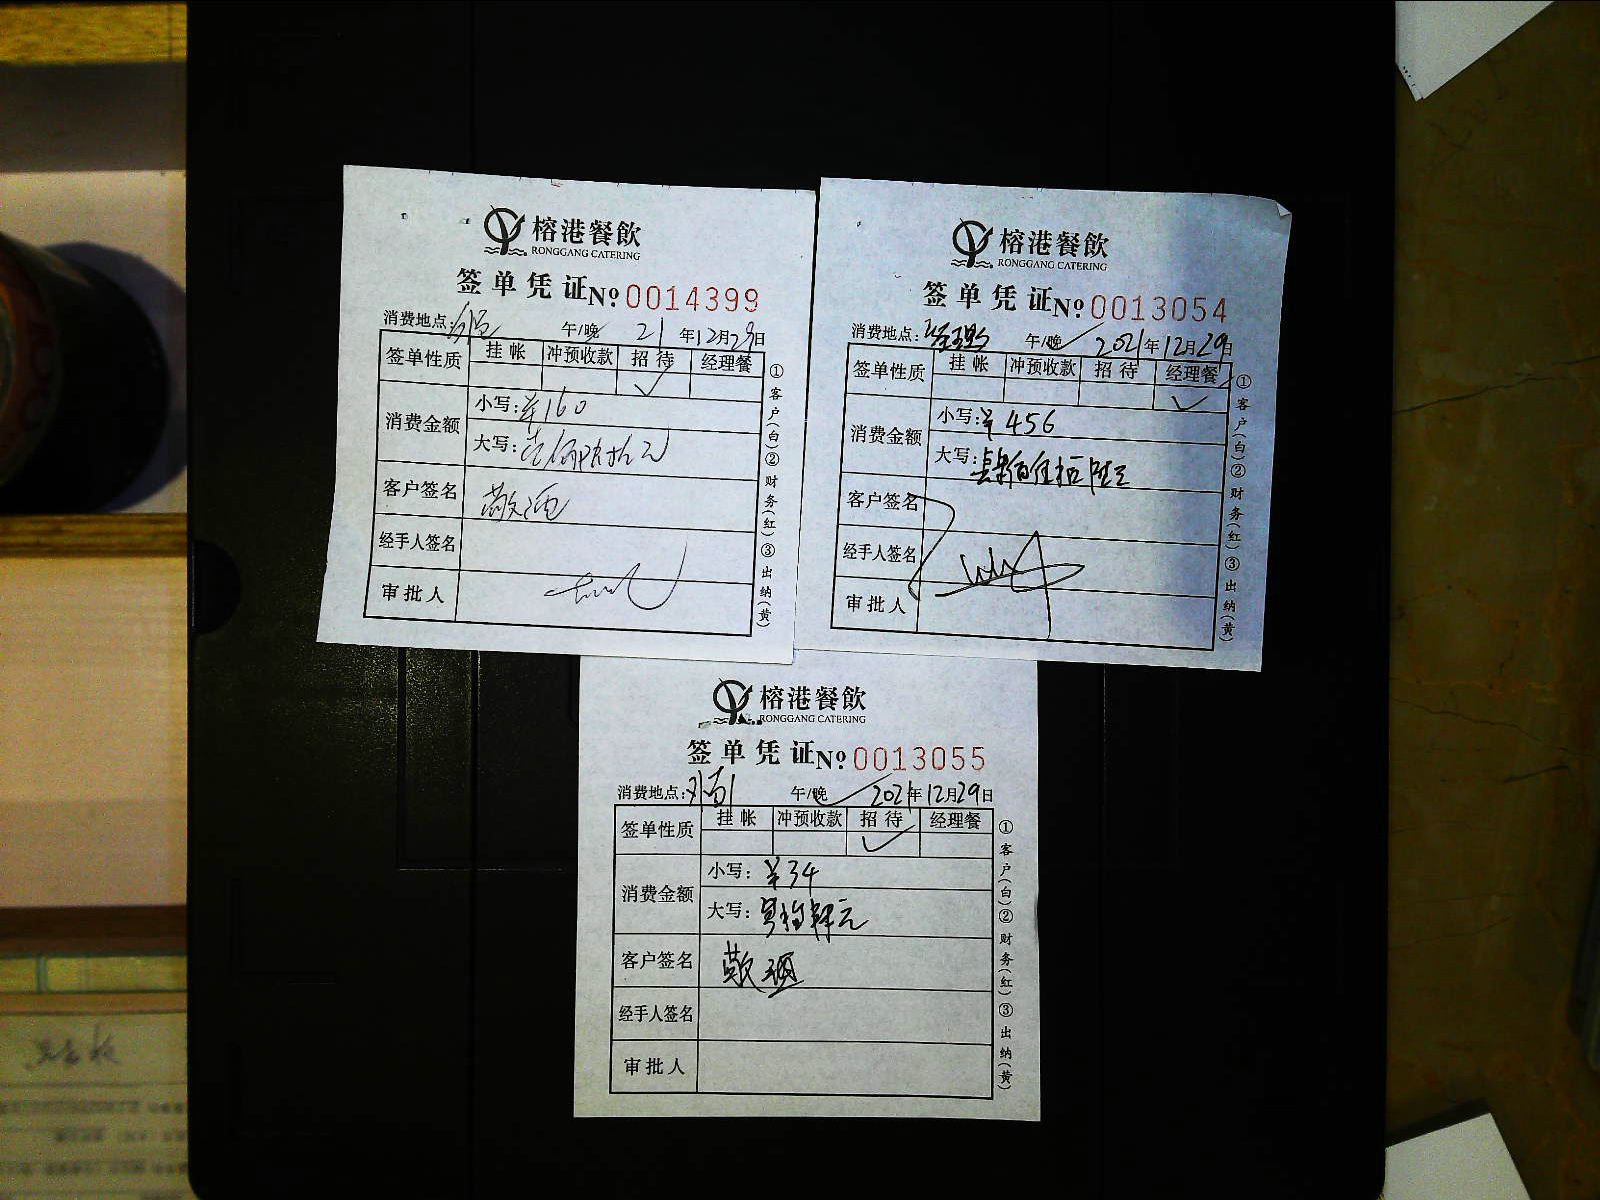 榕港餐飲
RONGGANG CATERING
签单凭证 No 0014399
消费地点: 午/晚 21年12月29日
签单性质 挂帐 冲预收款 招待 经理餐
✓
消费金额 小写:¥160
大写:壹佰陆拾元
客户签名 敬酒
经手人签名
审批人
①客户(白)②财务(红)③出纳(黄)
榕港餐飲
RONGGANG CATERING
签单凭证 No 0013054
消费地点: 午/晚 2021年12月29日
签单性质 挂帐 冲预收款 招待 经理餐
✓
消费金额 小写:¥456
大写:肆佰伍拾陆元
客户签名
经手人签名
审批人
①客户(白)②财务(红)③出纳(黄)
榕港餐飲
RONGGANG CATERING
签单凭证 No 0013055
消费地点: 午/晚 2021年12月29日
签单性质 挂帐 冲预收款 招待 经理餐
✓
消费金额 小写:¥34
大写:叁拾肆元
客户签名 敬酒
经手人签名
审批人
①客户(白)②财务(红)③出纳(黄)